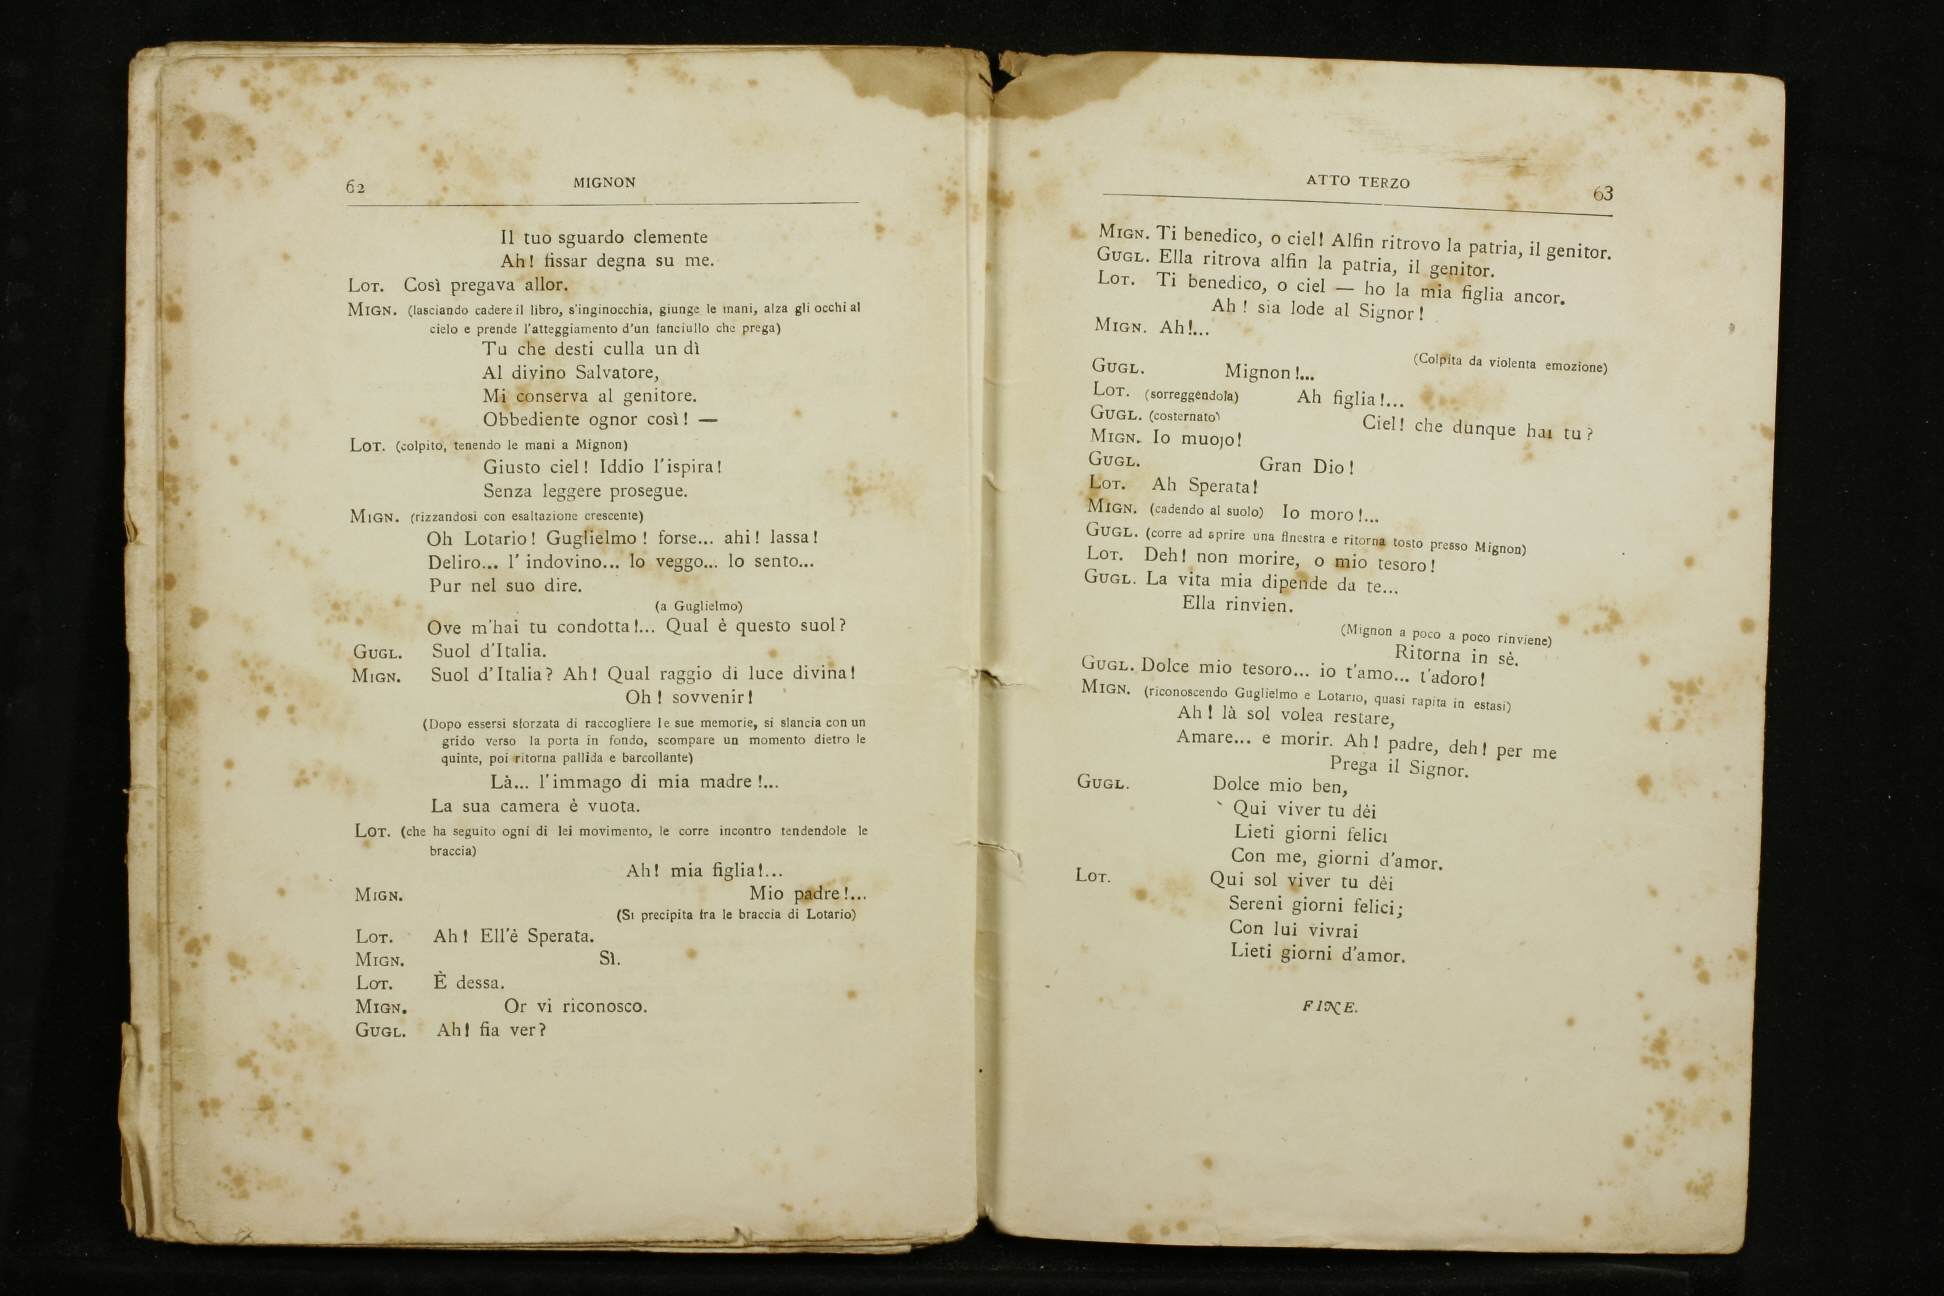 62
MIGNON
Il tuo sguardo clemente
Ah! fissar degna su me.
LOT. Così pregava allor.
MIGN. (lasciando cadere il libro, s'inginocchia, giunge le mani, alza gli occhi al
cielo e prende l'atteggiamento d'un fanciullo che prega)
Tu che desti culla un dì
Al divino Salvatore,
Mi conserva al genitore.
Obbediente ognor così! —
LOT. (colpito, tenendo le mani a Mignon)
Giusto ciel! Iddio l'ispira!
Senza leggere prosegue.
MIGN. (rizzandosi con esaltazione crescente)
Oh Lotario! Guglielmo! forse... ahi! lassa!
Deliro... l'indovino... lo veggo... lo sento...
Pur nel suo dire.
(a Guglielmo)
Ove m'hai tu condotta!... Qual è questo suol?
GUGL. Suol d'Italia.
MIGN. Suol d'Italia? Ah! Qual raggio di luce divina!
Oh! sovvenir!
(Dopo essersi sforzata di raccogliere le sue memorie, si slancia con un
grido verso la porta in fondo, scompare un momento dietro le
quinte, poi ritorna pallida e barcollante)
Là... l'immago di mia madre!...
La sua camera è vuota.
LOT. (che ha seguito ogni di lei movimento, le corre incontro tendendole le
braccia)
Ah! mia figlia!...
MIGN. Mio padre!...
(Si precipita fra le braccia di Lotario)
LOT. Ah! Ell'è Sperata.
MIGN. Sì.
LOT. È dessa.
MIGN. Or vi riconosco.
GUGL. Ah! fia ver?
ATTO TERZO
63
MIGN. Ti benedico, o ciel! Alfin ritrovo la patria, il genitor.
GUGL. Ella ritrova alfin la patria, il genitor.
LOT. Ti benedico, o ciel — ho la mia figlia ancor.
Ah! sia lode al Signor!
MIGN. Ah!...
(Colpita da violenta emozione)
GUGL. Mignon!...
LOT. (sorreggendola) Ah figlia!...
GUGL. (costernato) Ciel! che dunque hai tu?
MIGN. Io muojo!
GUGL. Gran Dio!
LOT. Ah Sperata!
MIGN. (cadendo al suolo) Io moro!...
GUGL. (corre ad aprire una finestra e ritorna tosto presso Mignon)
LOT. Deh! non morire, o mio tesoro!
GUGL. La vita mia dipende da te...
Ella rinvien.
(Mignon a poco a poco rinviene)
Ritorna in sè.
GUGL. Dolce mio tesoro... io t'amo... t'adoro!
MIGN. (riconoscendo Guglielmo e Lotario, quasi rapita in estasi)
Ah! là sol volea restare,
Amare... e morir. Ah! padre, deh! per me
Prega il Signor.
GUGL. Dolce mio ben,
Qui viver tu dèi
Lieti giorni felici
Con me, giorni d'amor.
LOT. Qui sol viver tu dèi
Sereni giorni felici;
Con lui vivrai
Lieti giorni d'amor.
FINE.